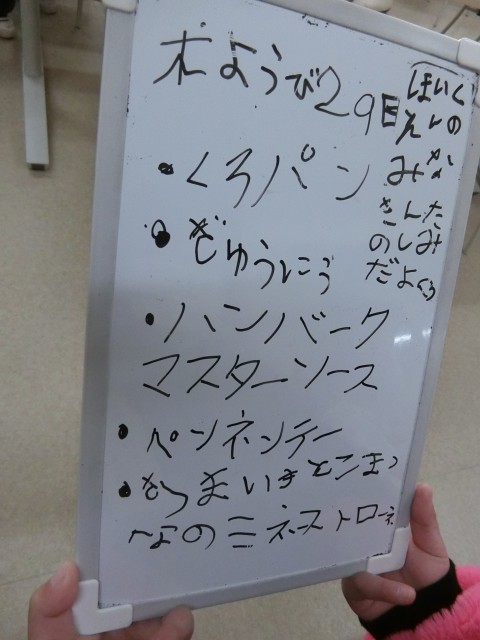 木ようび29日
・くろパン
・ぎゅうにう
・ハンバーク
マスターソース
・ペンネンテー
・さつまいもとこまつ
なのミネストローネ
ほいく
えんの
みな
さんた
のしみ
だよ